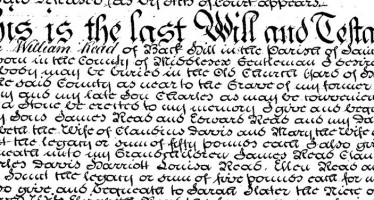 of Court appears.
his is the last Will and Testa
William Read of Back Hill in the Parish of Sain
born in the County of Middlesex Gentleman I desire
body may be buried in the Old Church Yard of
the said County as near to the Grave of my former
my late Son Charles as may be convenien
a Stone be erected to my memory I give and beq
my Sons James Read and Edward Read and my da
beth the Wife of Claudius Davis and Mary the Wife
the legacy or sum of fifty pounds each I also gi
queath unto my Grandchildren James Read
rles Davis Harriott Louisa Read Ellen Read a
Hunt the legacy or sum of five pounds each for m
so give and bequeath to Sarah Slater the Niece o